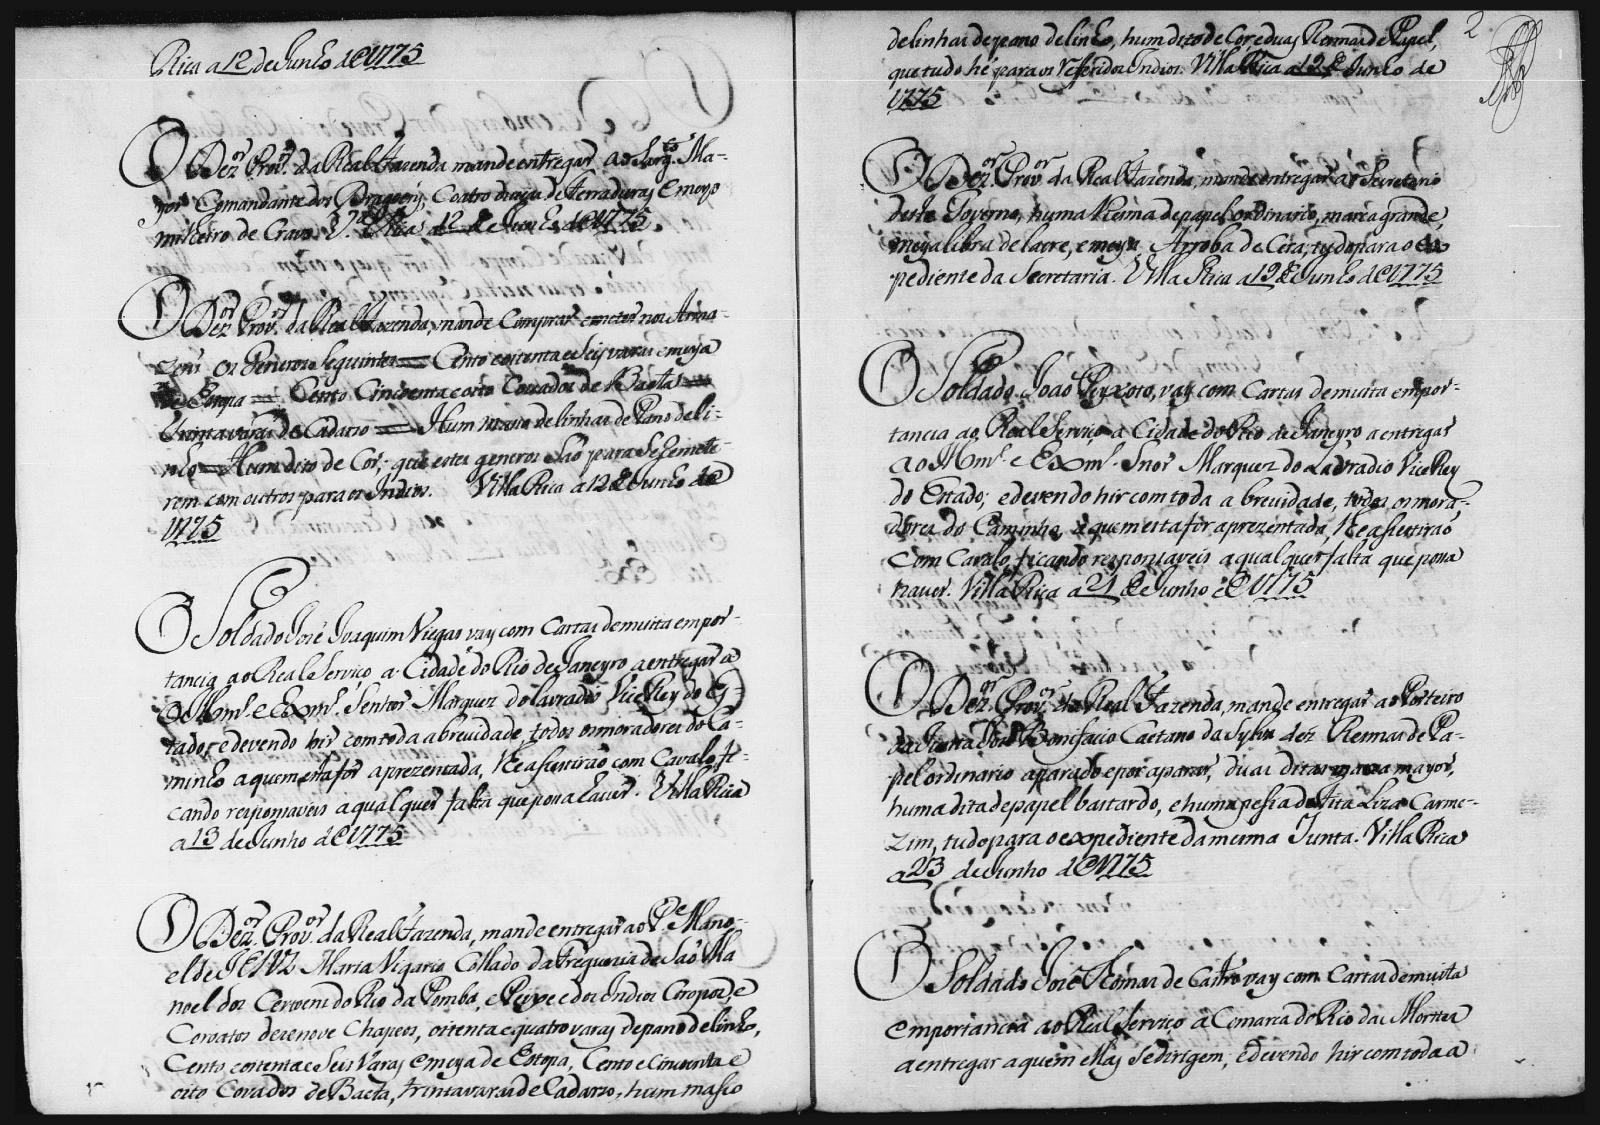 Rica a 12 de Junho de 1775
O Dez.or Prov.or da Real Fazenda mande entregar ao Sarg.to Ma-
yor Comandante dos Dragoens, Coatro duzias de Ferraduras, e meyo
milheiro de Cravos. V.a Rica a 12 de Junho de 1775.
O Dez.or Prov.or da Real Fazenda, mande Comprar e meter nos Arma-
zens os Generos seguintes = Cento e oitenta e Seis varas e meya
de Estopa = Cento Cincoenta e oito Covados de Baeta =
trinta varas de Cadarso = Hum maso de linhas de Pano de li-
nho = Hum dito de Cor; que estes generos São para Se Remete-
rem com outros para os Indios. Villa Rica a 12 de Junho de
1775
O Soldado José Joaquim Viegas vay com Cartas de muita empor-
tancia ao Real Serviço a Cidade do Rio de Janeyro a entregar a
o Illmo. e Exmo. Senhor Marquez do Lavradio Vice Rey do Es-
tado; e devendo hir com toda a brevidade, todos os moradores do Ca-
minho a quem esta for aprezentada, lhe asistirão com Cavalo, fi-
cando responsaveis a qualquer falta que posa haver. Villa Rica
a 13 de Junho de 1775
O Dez.or Prov.or da Real Fazenda, mande entregar ao P.e Mano-
el de JESUZ Maria Vigario Collado da Freguezia de São Ma
noel dos Certoens do Rio da Pomba, e Peyxe e dos Indios Coropos, e
Coroatos dezenove Chapeos, oitenta e quatro varas de pano de linho,
Cento e oitenta e Seis Varas e meya de Estopa, Cento e Cincoenta e
oito Covados de Baeta, trinta varas de Cadarso, hum maso
2
de linhas de pano de linho, hum dito de Cor e duas Resmas de Papel,
que tudo hé para os referidos Indios. Villa Rica a 12 de Junho de
1775
O Dez.or Prov.or da Real Fazenda, mande entregar ao Secretario
deste Governo, huma Resma de papel ordinario, marca grande,
meya libra de lacre, e meya Arroba de Cera, tudo para o ex
pediente da Secretaria. Villa Rica a 12 de Junho de 1775
O Soldado João Peyxoto, vay com Cartas de muita empor-
tancia ao Real Serviço a Cidade do Rio de Janeyro a entregar
ao Illmo. e Exmo. Snor Marquez do Lavradio Vice Rey
do Estado; e devendo hir com toda a brevidade, todos os mora-
dores do Caminho, a quem esta for aprezentada, lhe asistirão
com Cavalo, ficando responsaveis a qualquer falta que posa
haver. Villa Rica a 21 de Junho de 1775
O Dez.or Prov.or da Real Fazenda, mande entregar ao Porteiro
da Junta José Bonifacio Caetano da Sylva dez Resmas de Pa-
pel ordinario aparado e por aparar, duas ditas marca mayor,
huma dita de papel bastardo, e huma pesa de Fita Liza Carme-
zim, tudo para o expediente da mesma Junta. Villa Rica
a 23 de Junho de 1775
O Soldado José Thomas de Castro vay com Cartas de muita
emportancia ao Real Serviço a Comarca do Rio das Mortes
a entregar a quem ellas Se dirigem; e devendo hir com toda a